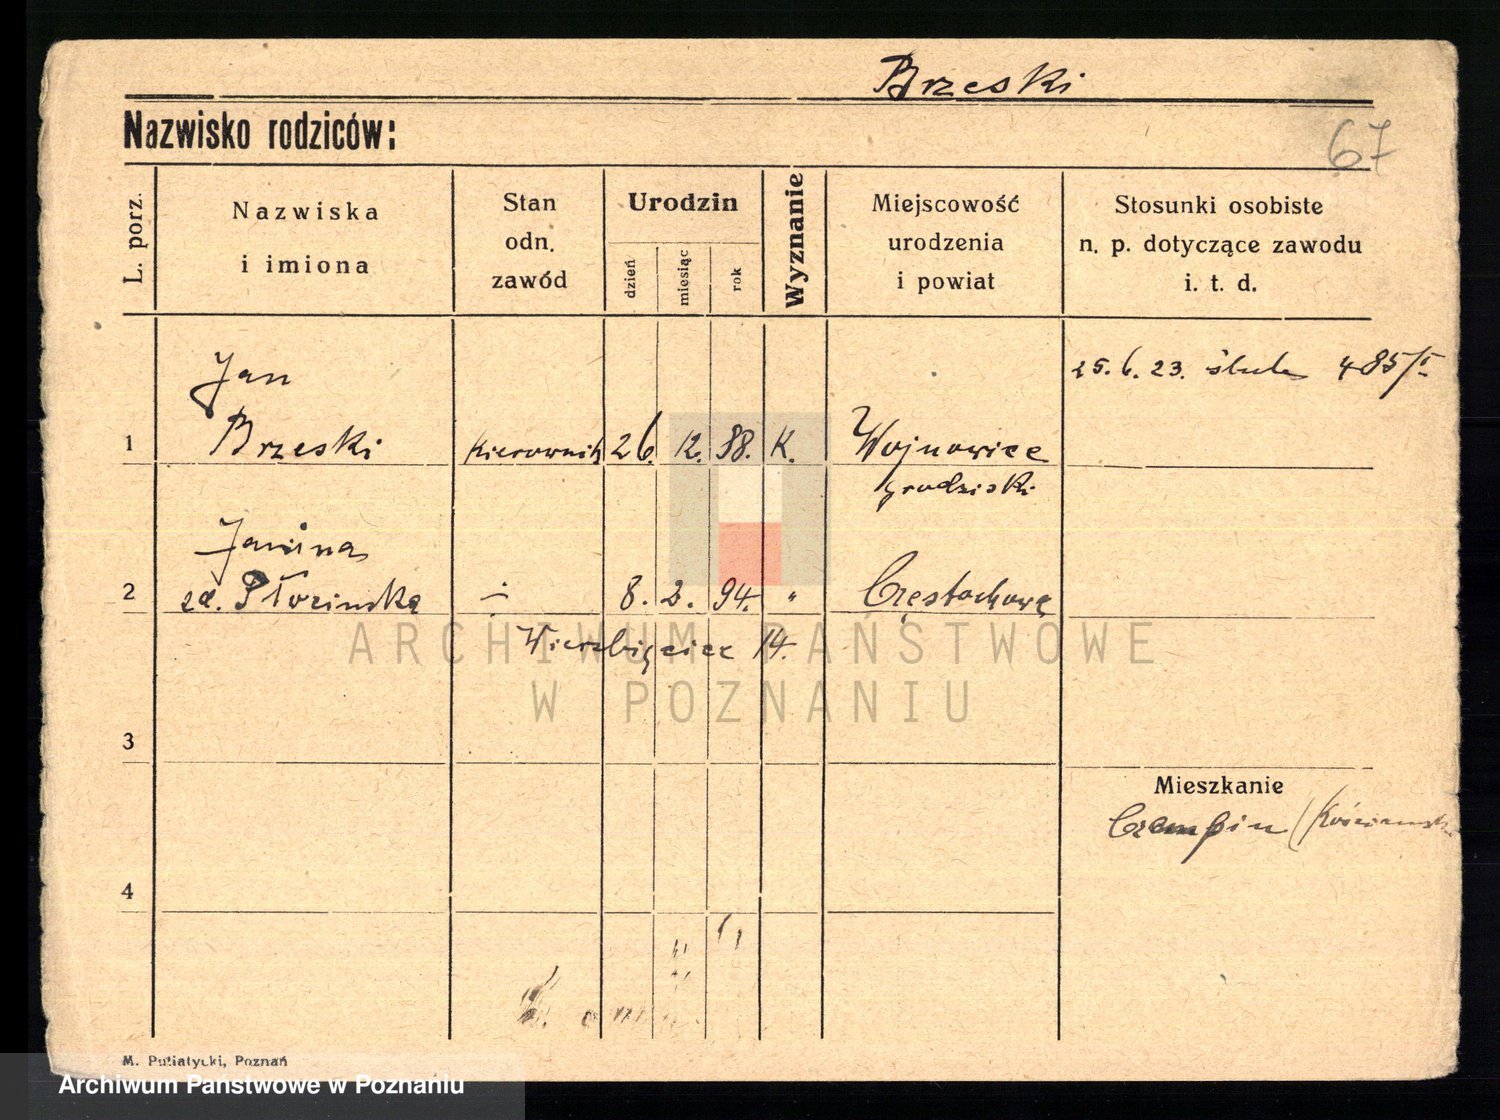 Brzeski
Nazwisko rodziców:
67
L. porz.
Nazwiska
i imiona
Stan
odn.
zawód
Urodzin
dzień
miesiąc
rok
Wyznanie
Miejscowość
urodzenia
i powiat
Stosunki osobiste
n. p. dotyczące zawodu
i. t. d.
Jan
25. 6. 23. 485/
1 Brzeski kierownik 26. 12. 88. K. Wojnowice
grodziski
Janina
2 zd. 8. 2. 94. " Częstochowa
Wierzbięcice 14.
ARCHIWUM PAŃSTWOWE
W POZNANIU
3
Mieszkanie
Czempiń (Kościański
4
M. Putiatycki, Poznań
Archiwum Państwowe w Poznaniu